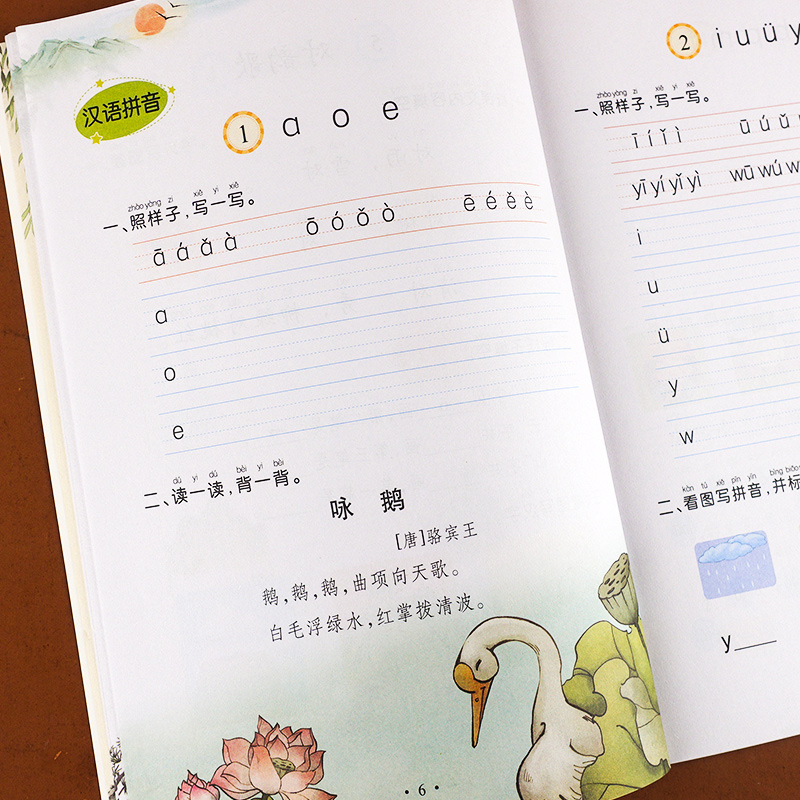 汉语拼音
1 ɑ o e
zhào yàng zi xiě yi xiě
一、照样子，写一写。
ā á ǎ à ō ó ǒ ò ē é ě è
ɑ
o
e
dú yi dú bèi yi bèi
二、读一读，背一背。
咏 鹅
[唐]骆宾王
鹅，鹅，鹅，曲项向天歌。
白毛浮绿水，红掌拨清波。
· 6 ·
2 i u ü y
zhào yàng zi xiě yi xiě
一、照样子，写一写。
ī í ǐ ì ū ú ǔ
yī yí yǐ yì wū wú
i
u
ü
y
w
kàn tú xiě pīn yīn bìng biāo
二、看图写拼音，并标
y___